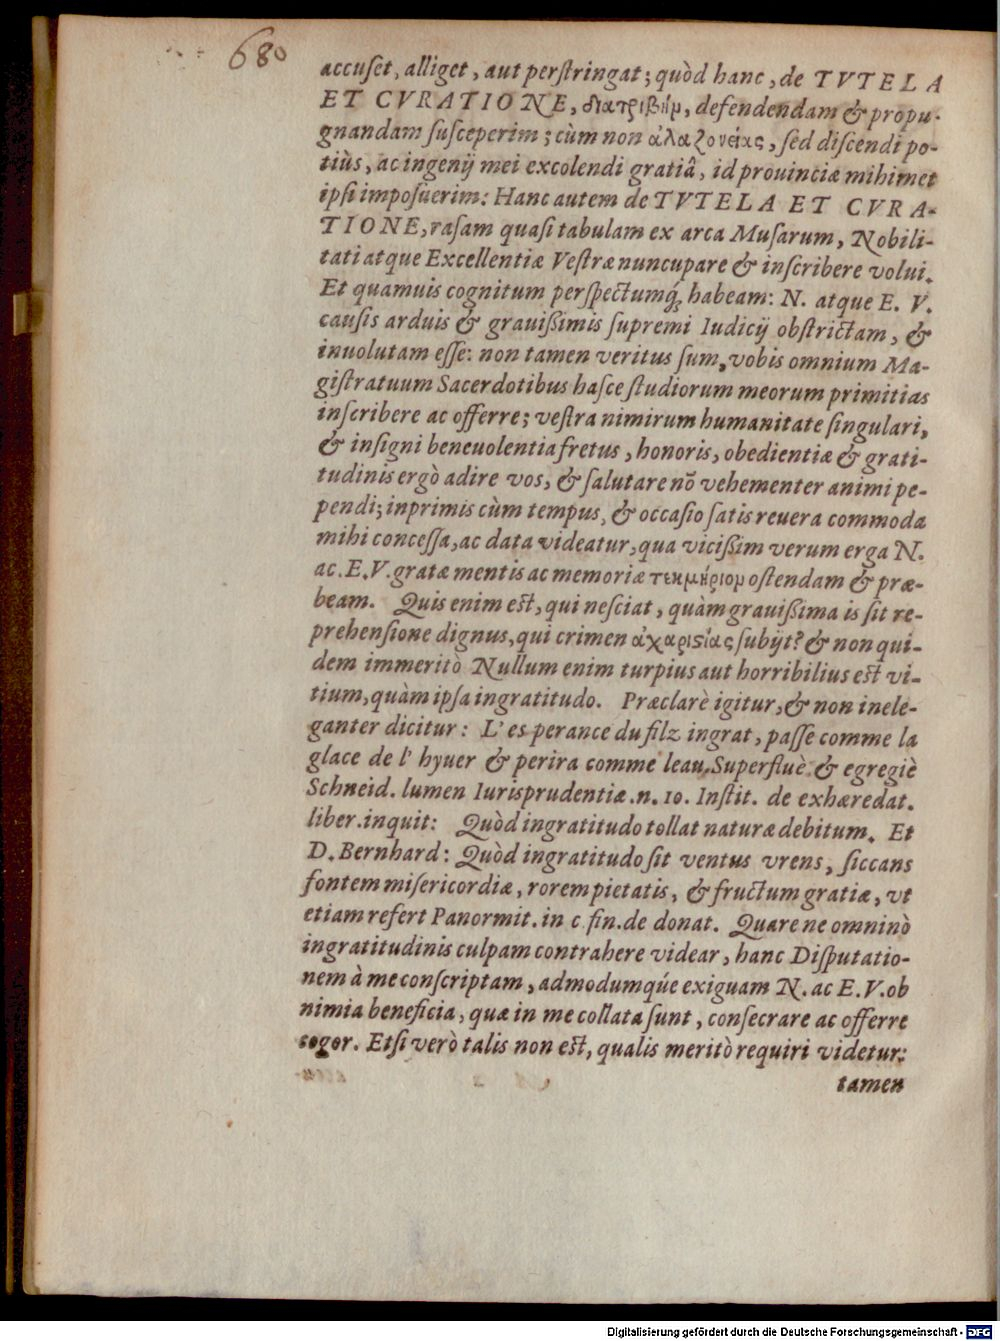 680
accuſet, alliget, aut perſtringat; quòd hanc, de TVTELA
ET CVRATIONE, διατριβὴν, defendendam & propu-
gnandam ſuſceperim; cùm non ἀλαζονείας, ſed diſcendi po-
tiùs, ac ingenij mei excolendi gratiâ, id prouinciæ mihimet
ipſi impoſuerim: Hanc autem de TVTELA ET CVRA-
TIONE, raſam quaſi tabulam ex arca Muſarum, Nobili-
tati atque Excellentiæ Veſtræ nuncupare & inſcribere volui.
Et quamuis cognitum perſpectumq́; habeam: N. atque E. V.
cauſis arduis & grauißimis ſupremi Iudicij obſtrictam, &
inuolutam eſſe: non tamen veritus ſum, vobis omnium Ma-
giſtratuum Sacerdotibus haſce ſtudiorum meorum primitias
inſcribere ac offerre; veſtra nimirum humanitate ſingulari,
& inſigni beneuolentia fretus, honoris, obedientiæ & grati-
tudinis ergò adire vos, & ſalutare nõ vehementer animi pe-
pendi; inprimis cùm tempus, & occaſio ſatis reuera commoda
mihi conceſſa, ac data videatur, qua vicißim verum erga N.
ac. E. V. gratæ mentis ac memoriæ τεκμήριον oſtendam & præ-
beam. Quis enim eſt, qui neſciat, quàm grauißima is ſit re-
prehenſione dignus, qui crimen ἀχαριϛίας ſubijt? & non qui-
dem immeritò Nullum enim turpius aut horribilius eſt vi-
tium, quàm ipſa ingratitudo. Præclarè igitur, & non inele-
ganter dicitur: L' es perance du filz ingrat, paſſe comme la
glace de l' hyuer & perira comme leau. Superfluè & egregiè
Schneid. lumen Iurisprudentiæ. n. 10. Inſtit. de exhæredat.
liber. inquit: Quòd ingratitudo tollat naturæ debitum. Et
D. Bernhard: Quòd ingratitudo ſit ventus vrens, ſiccans
fontem miſericordiæ, rorem pietatis, & fructum gratiæ, vt
etiam refert Panormit. in c fin. de donat. Quare ne omninò
ingratitudinis culpam contrahere videar, hanc Diſputatio-
nem à me conſcriptam, admodumq́ue exiguam N. ac E. V. ob
nimia beneficia, quæ in me collata ſunt, conſecrare ac offerre
cogor. Etſi verò talis non eſt, qualis meritò requiri videtur:
tamen
Digitalisierung gefördert durch die Deutsche Forschungsgemeinschaft - DFG